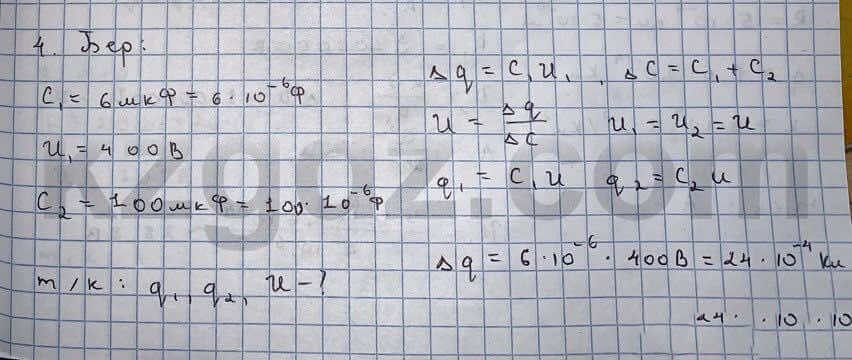 4. Бер:
C₁ = 6 мкФ = 6 · 10⁻⁶ Ф
u₁ = 400 В
C₂ = 100 мкФ = 100 · 10⁻⁶ Ф
т/к: q₁, q₂, u - ?
Δq = C₁u₁, ΔC = C₁ + C₂
u = Δq/ΔC   u₁ = u₂ = u
q₁ = C₁u   q₂ = C₂u
Δq = 6 · 10⁻⁶ · 400 В = 24 · 10⁻⁴ Кл
24 · · 10 · 10
kzgdz.com